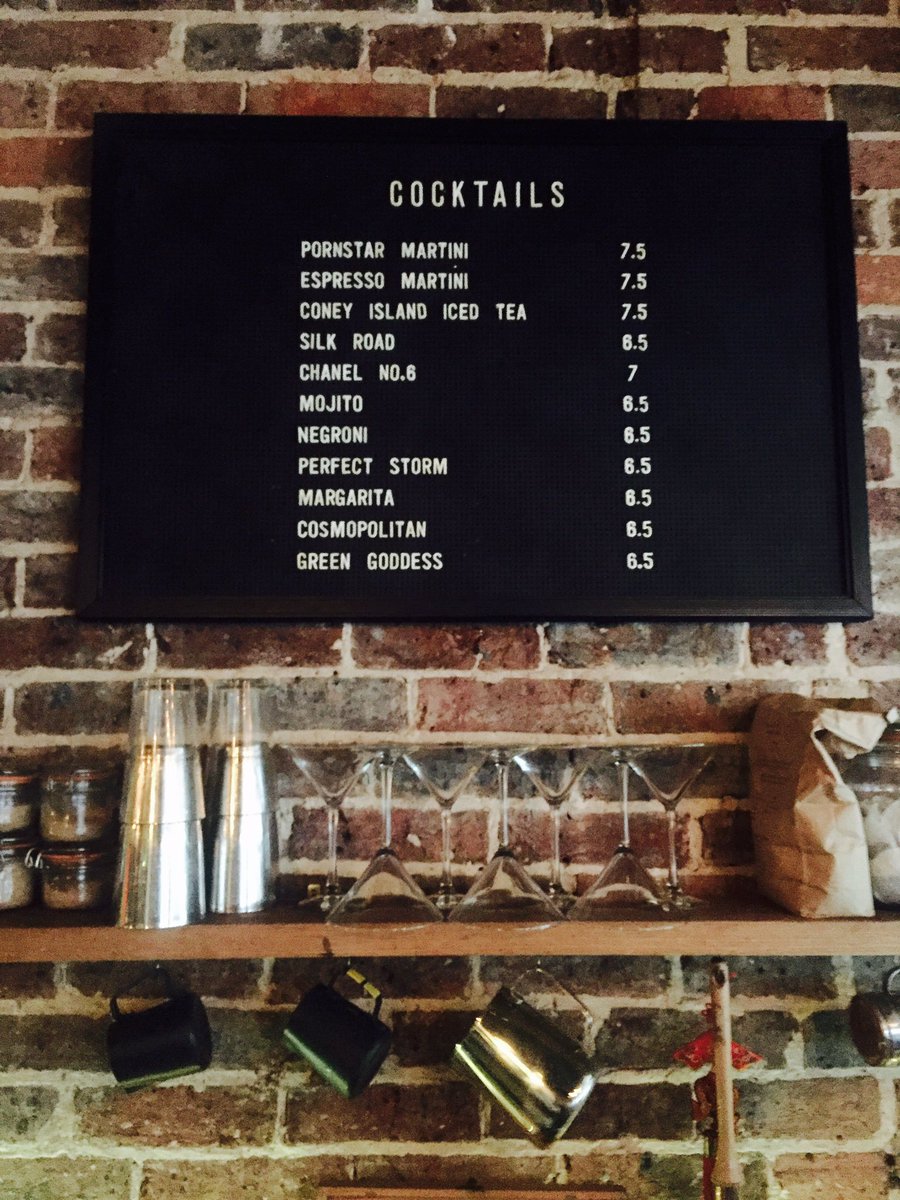 COCKTAILS
PORNSTAR MARTINI 7.5
ESPRESSO MARTINI 7.5
CONEY ISLAND ICED TEA 7.5
SILK ROAD 6.5
CHANEL NO.6 7
MOJITO 6.5
NEGRONI 6.5
PERFECT STORM 6.5
MARGARITA 6.5
COSMOPOLITAN 6.5
GREEN GODDESS 6.5